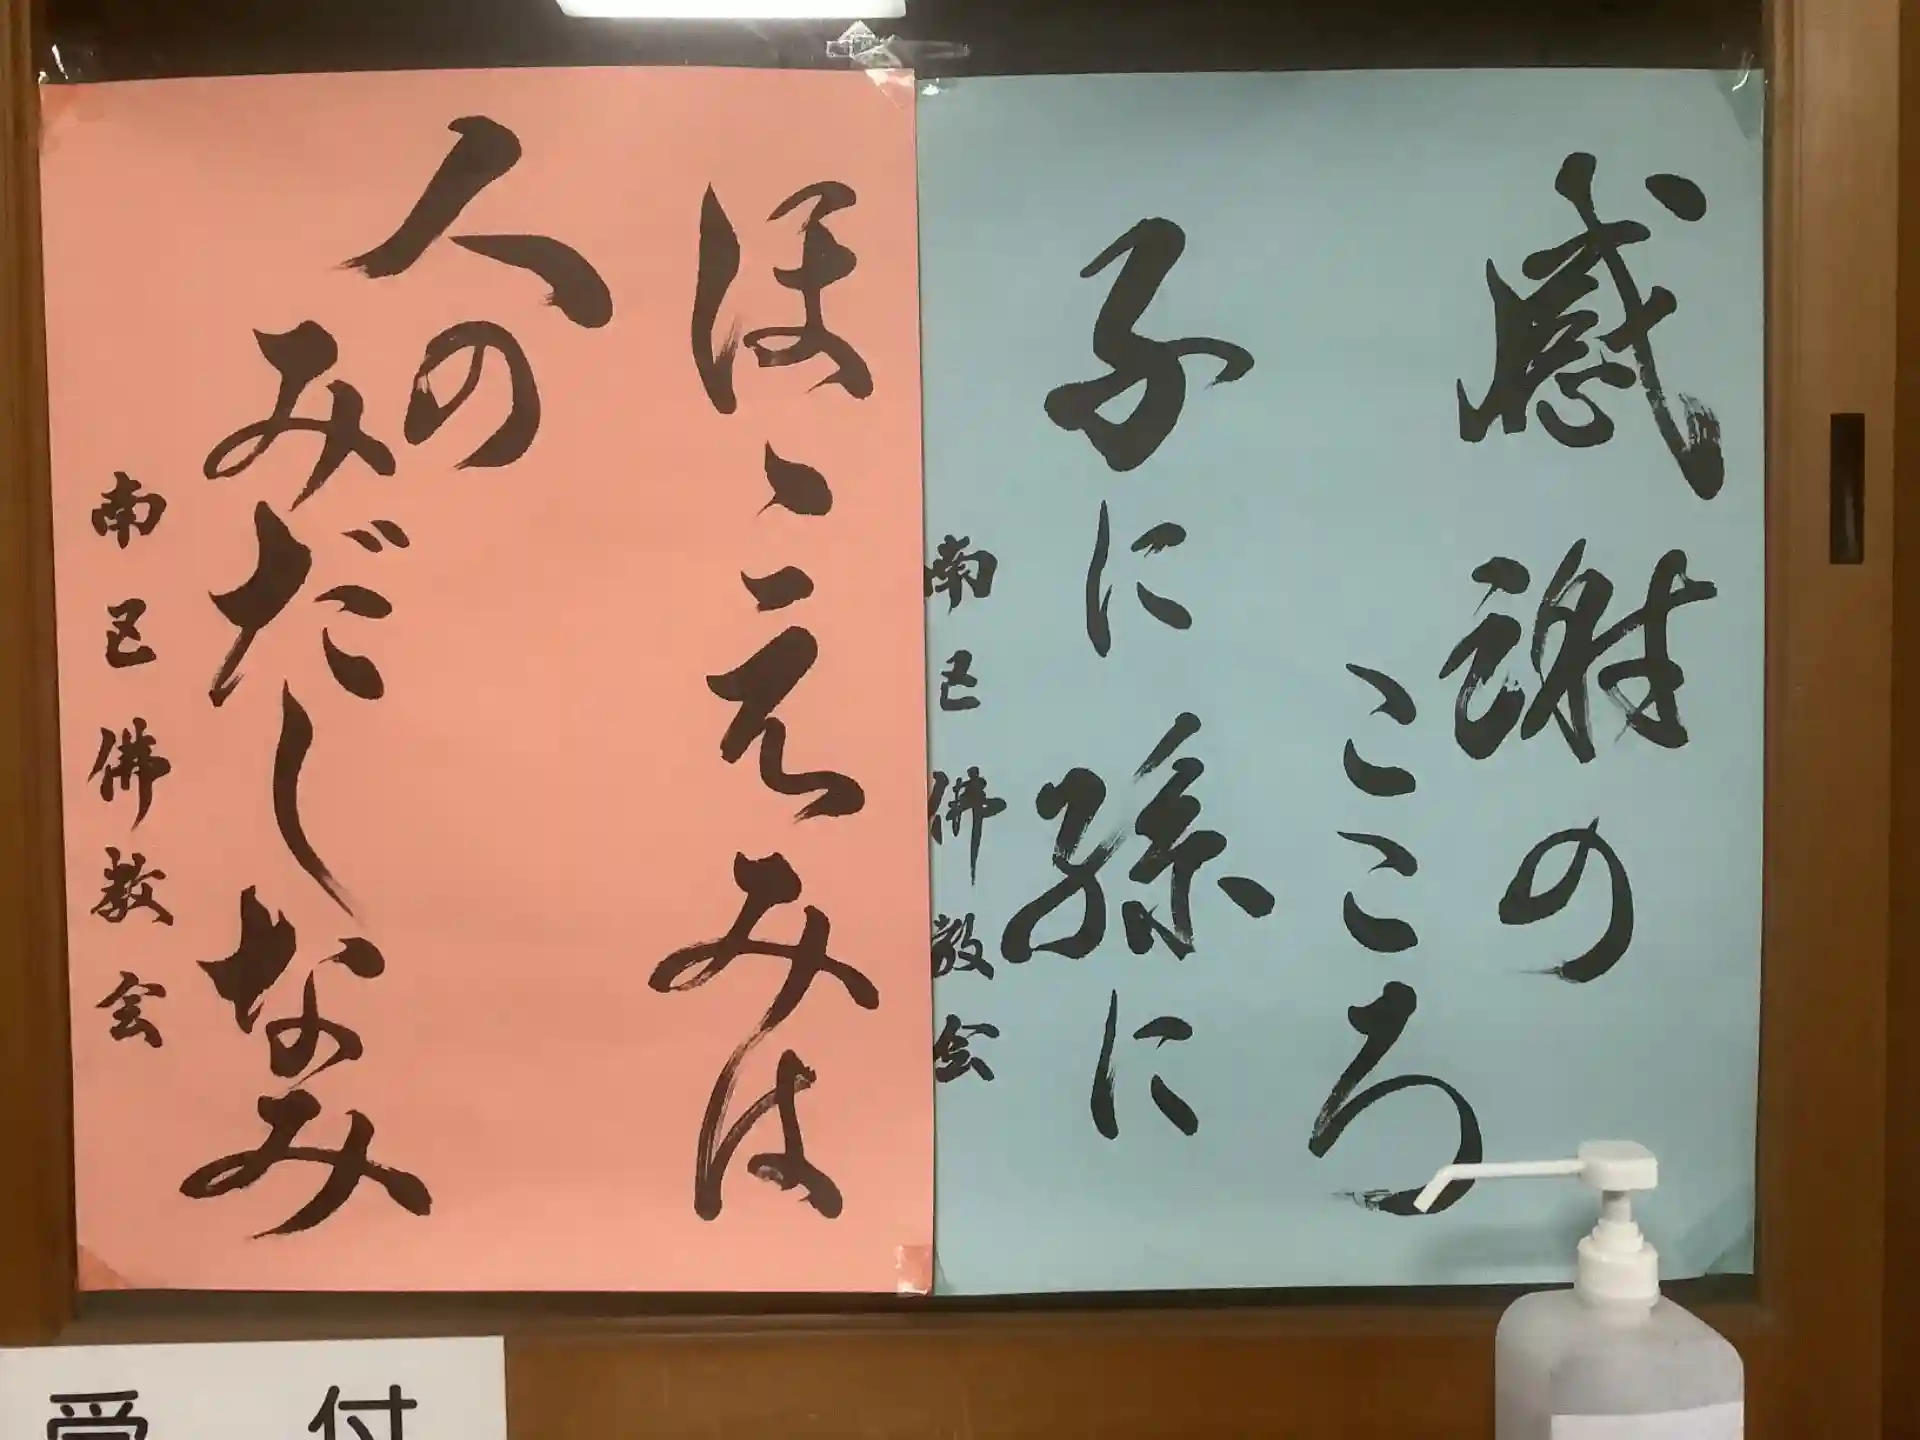 感謝の
こころ
子に孫に
南区佛教会
ほゝえみは
人の
みだしなみ
南区佛教会
受付